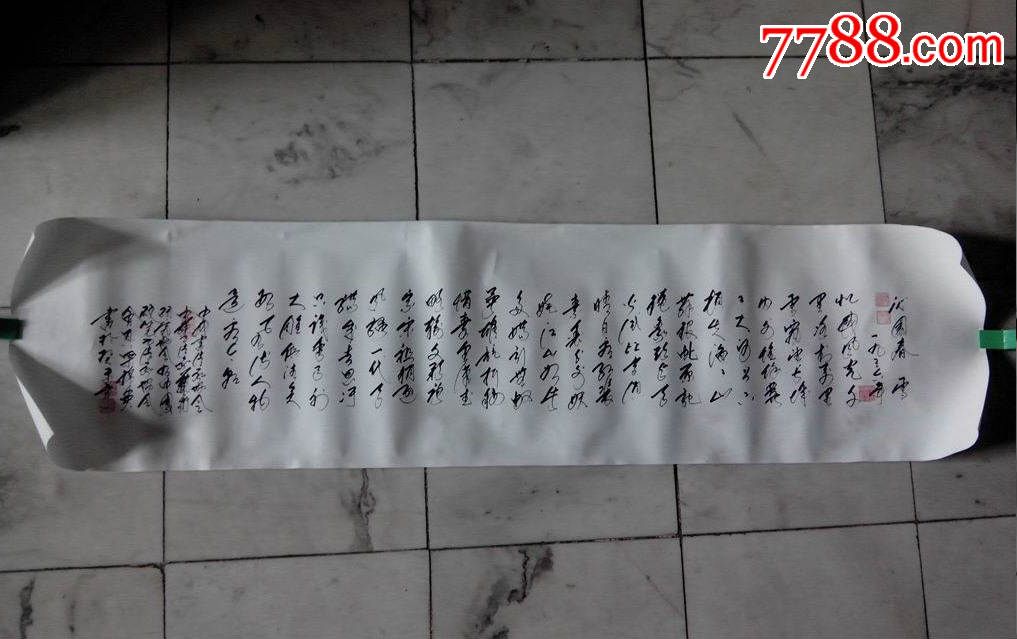 7788.com
沁园春 雪
一九三六年
北国风光千
里冰封万里
雪飘望长城
内外惟余莽
々大河上下
顿失滔々山
舞银蛇原驰
蜡象欲与天
公试比高须
晴日看红装
素裹分外妖
娆江山如此
多娇引无数
英雄竞折腰
惜秦皇汉武
略输文采唐
宗宋祖稍逊
风骚一代天
骄成吉思汗
只识弯弓射
大雕俱往矣
数风流人物
还看今朝